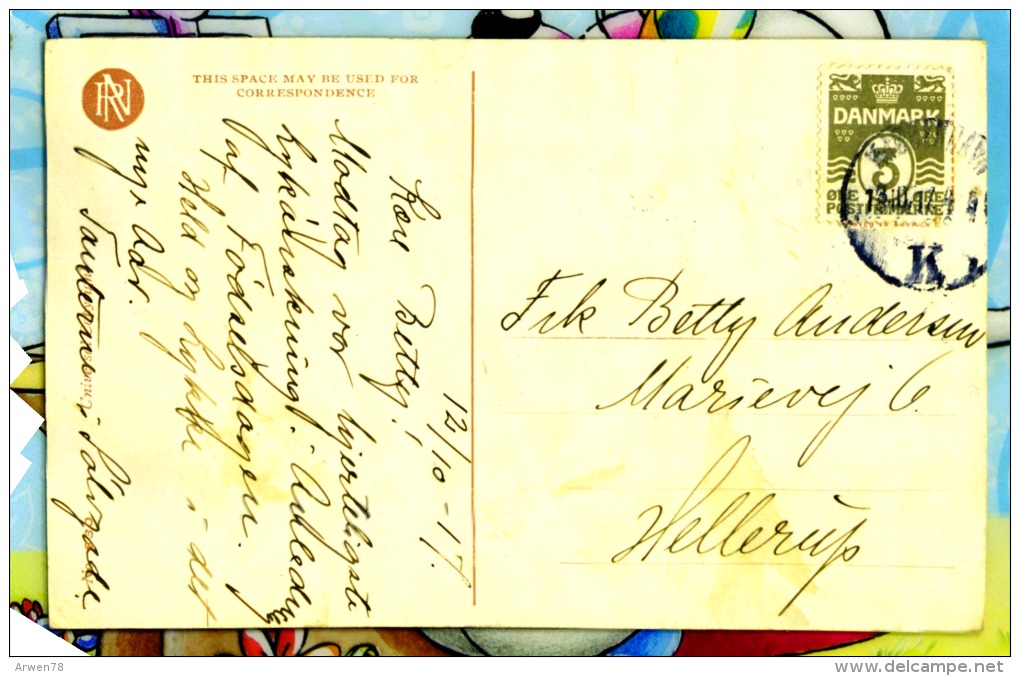 THIS SPACE MAY BE USED FOR
CORRESPONDENCE
12/10-17.
Kære Betty!
Modtag vor hjerteligste
Lykønskning i Anledng
af Födselsdagen.
Held og Lykke i det
nye Aar.
Tanterne i Sölvgade
DANMARK
3
ØRE ØRE
POSTFRIMÆRKE
K
Frk Betty Andersen
Marievej 6.
Hellerup
Arwen78
www.delcampe.net